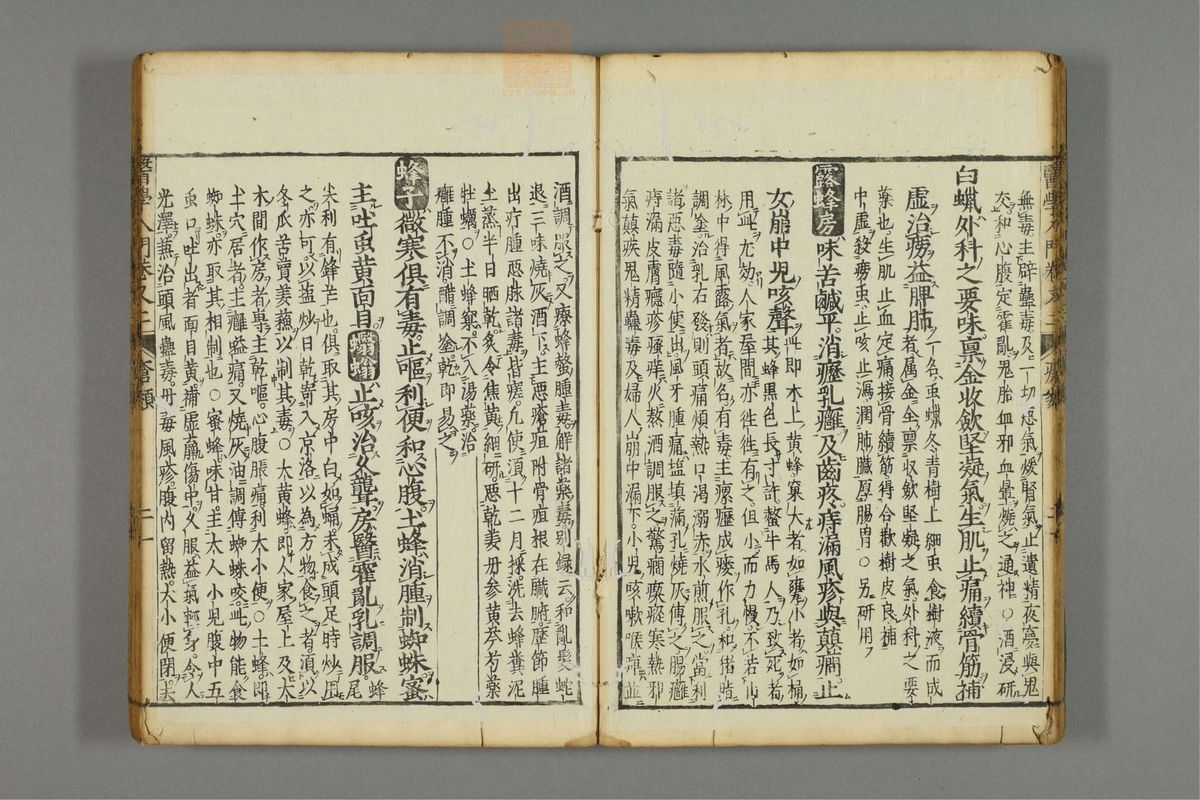 無毒主辟蠱毒及一切惡氣煖腎氣止遺精夜夢與鬼
交和心腹定霍亂鬼胎血邪血暈燒之通神○酒浸研
白蠟外科之要味稟金收歛堅凝氣生肌止痛續骨筋補
虛治癆益脾肺
一名虫蠟冬青樹上細虫食樹液而成
者屬金全稟收歛堅凝之氣外科之要
藥也生肌止血定痛接骨續筋得合歡樹皮良補
中虛殺癆虫止咳止瀉潤肺臟厚腸胃○另研用
露蜂房味苦鹹平消瘰乳癰及齒疼痔漏風疹與顛癎止
女崩中児咳聲
此即木上黄蜂窠大者如甕小者如桶
其蜂黒色長寸許螫牛馬人乃致死者
用此尤効人家屋間亦徃徃有之但小而力慢不若山
林中得風露氣者故名有毒主瘰癧成瘻作孔和猪脂
調塗治乳石發則頭痛煩熱口渴溺赤水煎服之當利
諸惡毒隨小便出風牙腫痛塩填滿孔燒灰傅之腸癰
痔漏皮膚癮疹瘙痒火熬酒調服之驚癎瘈瘲寒熱邪
氣顛疾鬼精蠱毒及婦人崩中漏下小児咳嗽喉痺並
酒調服之又療蜂螫腫毒解諸藥毒別録云和亂髪蛇
退三味燒灰酒下主惡瘡疽附骨疽根在臟腑歷節腫
出疔腫惡脉諸毒皆瘥凡使湏十二月採洗去蜂糞泥
土蒸半日晒乾炙令焦黄細研惡乾姜丹參黄芩芍藥
牡蠣○土蜂窠不入湯藥治
癰腫不消醋調塗乾即易之
蜂子微寒俱有毒止嘔利便和心腹土蜂消腫制蜘蛛蜜
主吐虫黄面目蠮螉止咳治久聾房醫霍亂乳調服
蜂尾
尖利有鋒芒也俱取其房中白如蛹未成頭足時炒用
之亦可以塩炒日乾寄入京洛以為方物食之者湏以
冬瓜苦蕒姜蘓以制其毒○大黄蜂即人家屋上及大
木間作房者是主乾嘔心腹脹痛利大小便○土蜂即
土穴居者主癰嗌痛又燒灰油調傅蜘蛛咬此物能食
蜘蛛亦取其相制也○蜜蜂味甘主大人小児腹中五
虫口吐出者面目黄補虛羸傷中久服益氣輕身令人
光澤兼治頭風蠱毒丹毒風疹腹内留熱大小便閉去